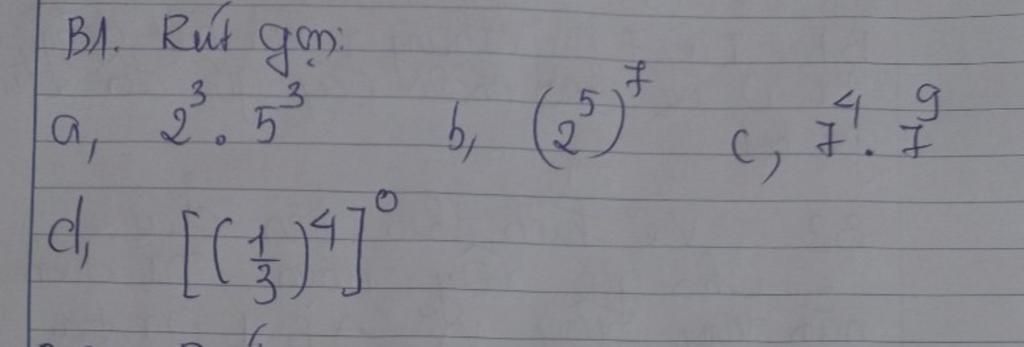 B1. Rút gọn:
a, 2³ . 5³ b, (2⁵)⁷ c, 7⁴ . 7⁹
d, [(1/3)⁴]⁰